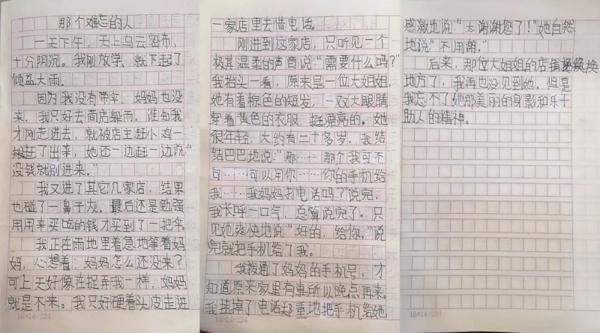 那个难忘的人
一天下午，天上乌云密布，
十分阴沉。我刚放学，就下起了
倾盆大雨。
因为我没有带伞，妈妈也没
来，我只好去商店架雨，谁知我
才刚走进去，就被店主赶小鸡一
赶了出来，她还一边赶一边说“
没钱就别进来。”
我又进了其它几家店，结果
也碰了一鼻子灰。最后还是勉强
用用来买吃的钱才买到了一把伞
我正在雨地里着急地等着妈
妈，心想着：妈妈怎么还没来？
可上天好像在捉弄我一样，妈妈
就是不来。我只好硬着头皮走进
一家店里去借电话。
刚进到这家店，只听见一个
极其温柔的声音说：“需要什么吗？”
我抬头一看，原来是一位大姐姐，
她有着棕色的短发，一双大眼睛，
穿着黄色的衣服，挺漂亮的。她
很年轻，大约有二十多岁。我结
结巴巴地说：“那……那个我可不
可……可以用你……你的手机给
我……我妈妈打电话吗？说完，
我长呼一口气，总算说完了。只
见她爽快地说：“好的，给你。”说
完就把手机给了我。
我拨通了妈妈的手机号，才
知道原来家里有事所以晚点再来
我挂掉了电话郑重地把手机给她
感激地说：“太谢谢您了！”她自然
地说“不用谢。”
后来，那位大姐姐的店换
地方了，我再也没见到她。但是
我忘不了她那美丽的身影和乐于
助人的精神。